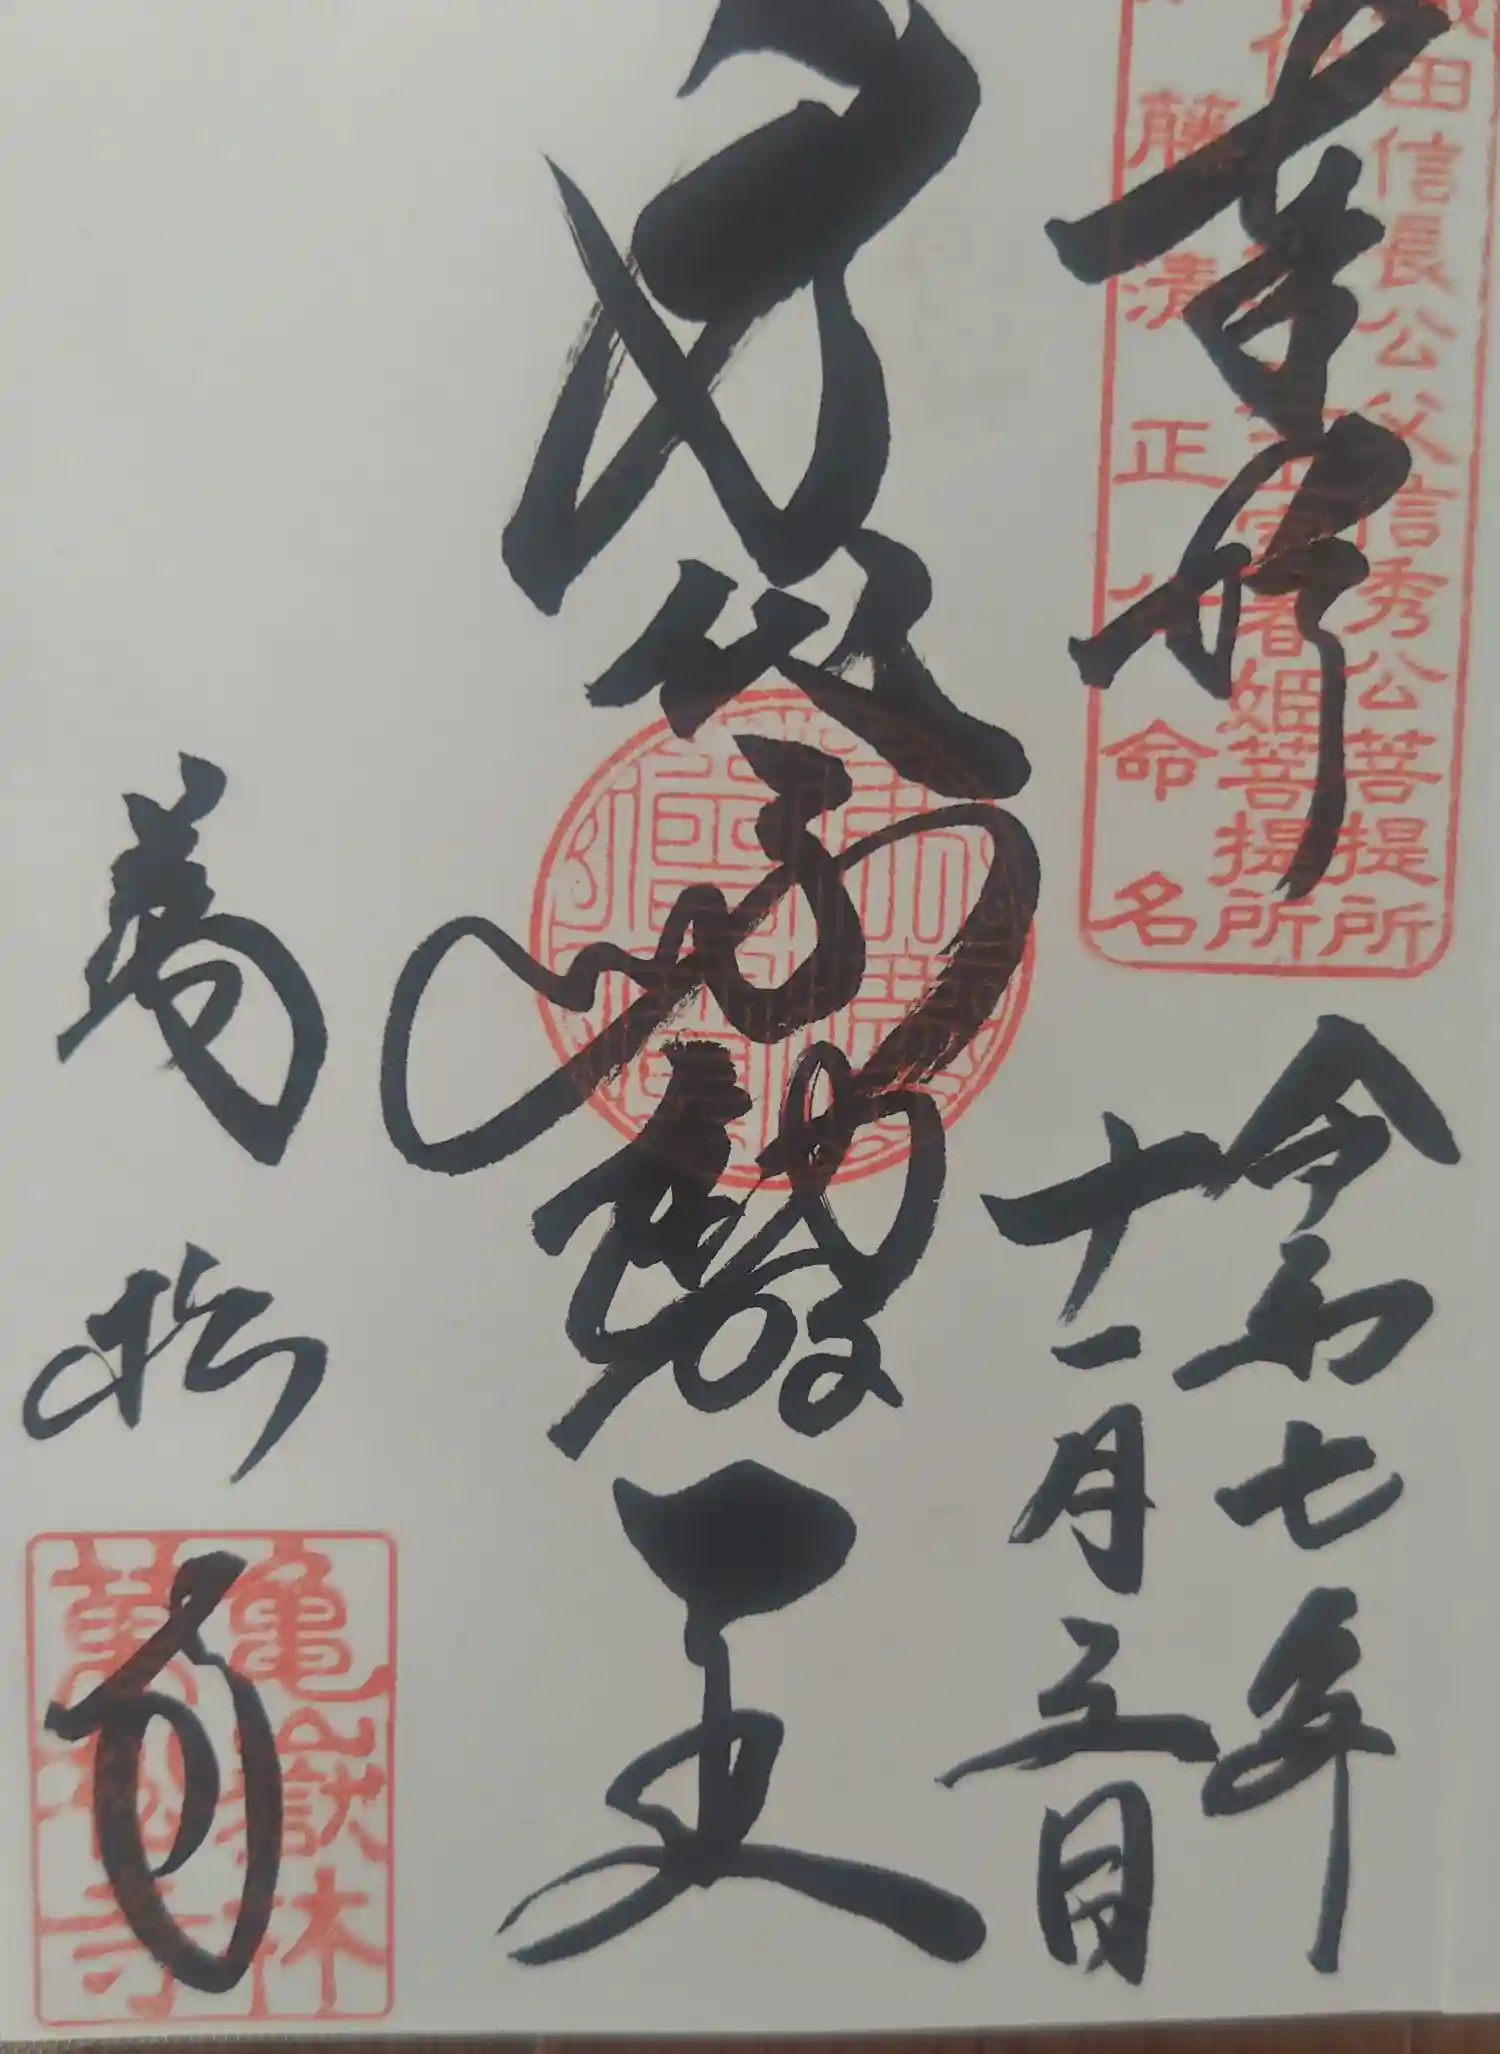 田信長公父信秀公菩提所
正室春姫菩提所
藤清正公命名
奉拝
令和七年
十一月三日
身代不動明王
萬松寺
亀嶽林
萬松寺